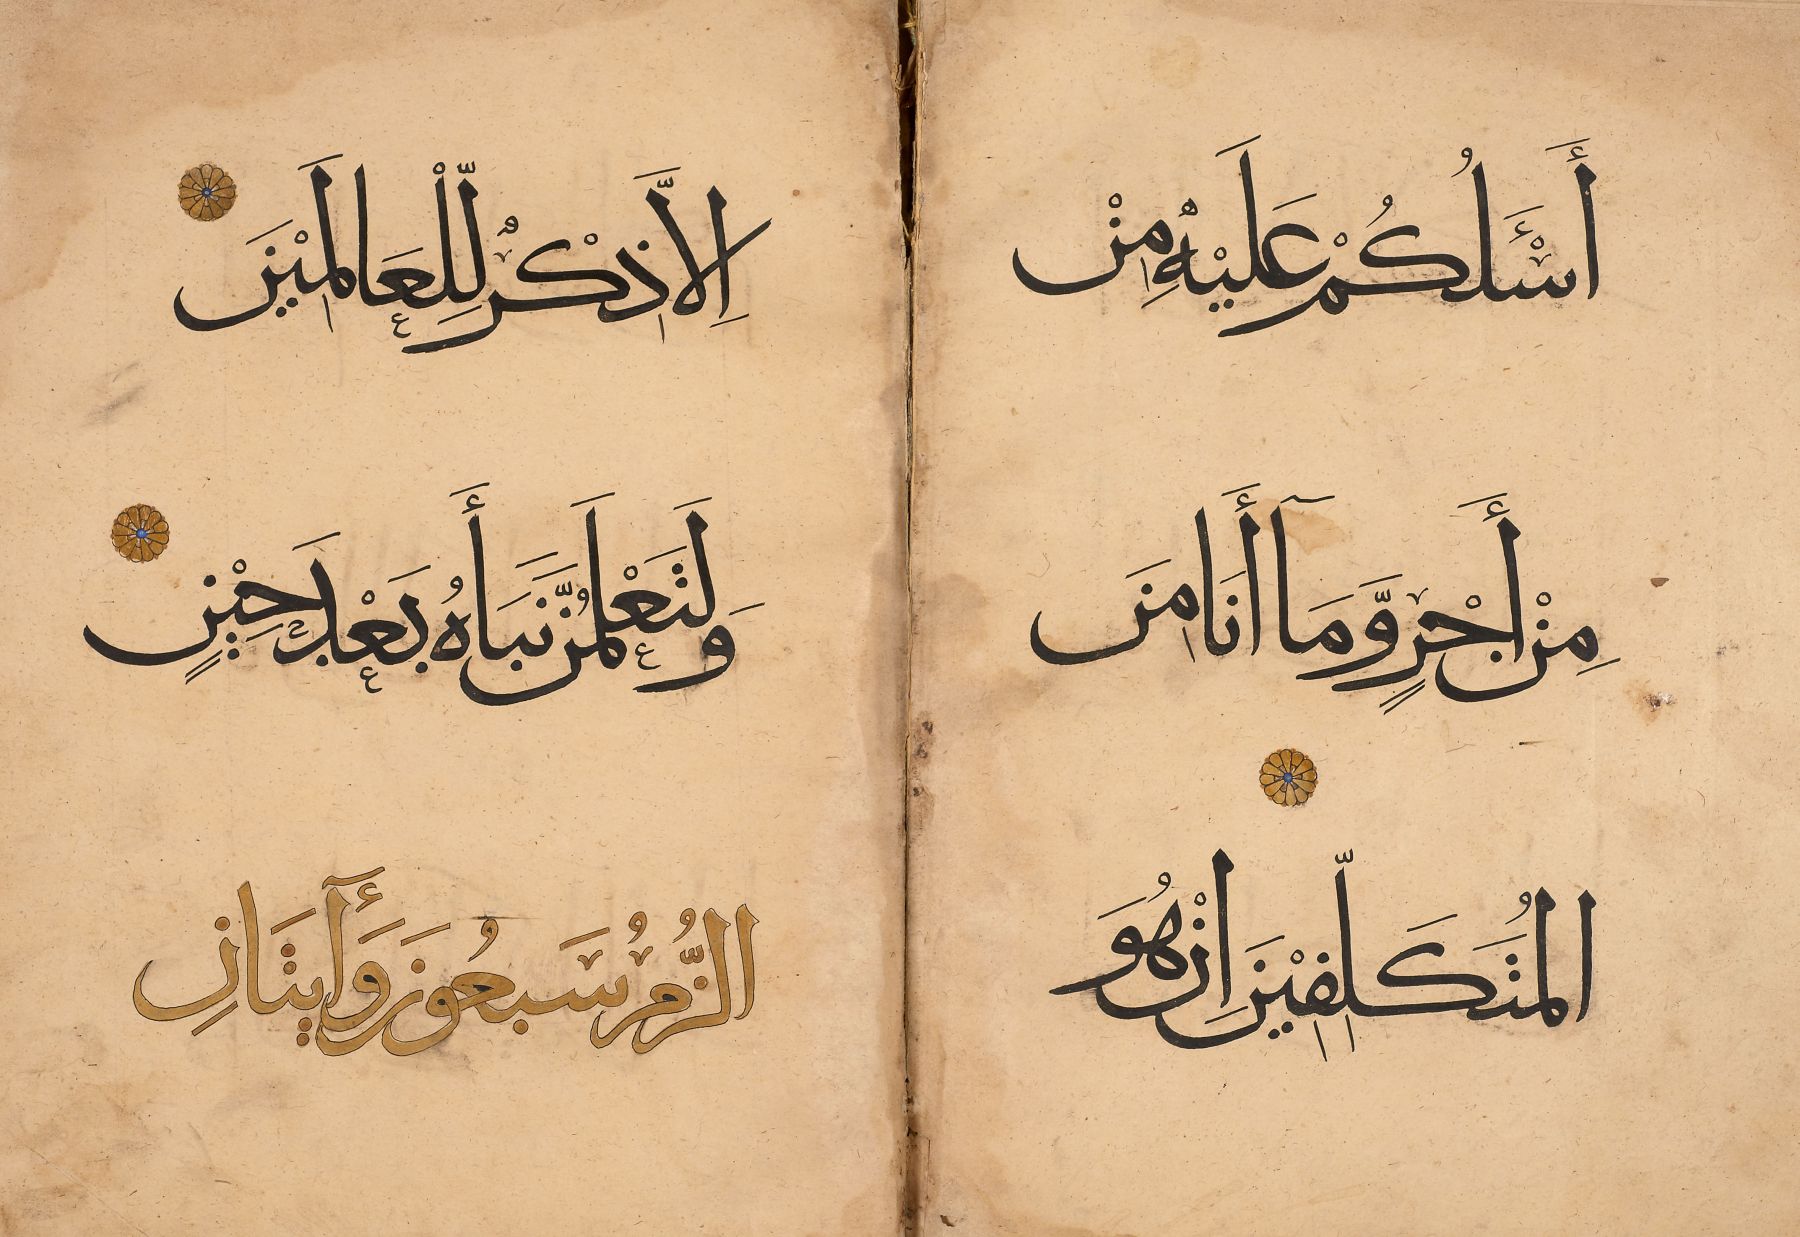 أَسْـَٔلُكُمْ عَلَيْهِ مِنْ
مِنْ أَجْرٍ وَّمَآ أَنَا مِنَ
الْمُتَكَلِّفِيْنَ اِنْ هُوَ
اِلَّا ذِكْرٌ لِّلْعَالَمِيْنَ
وَلَتَعْلَمُنَّ نَبَأَهُ بَعْدَ حِيْنٍ
الزُّمَرُ سَبْعُوْنَ وَأٓيَتَانِ